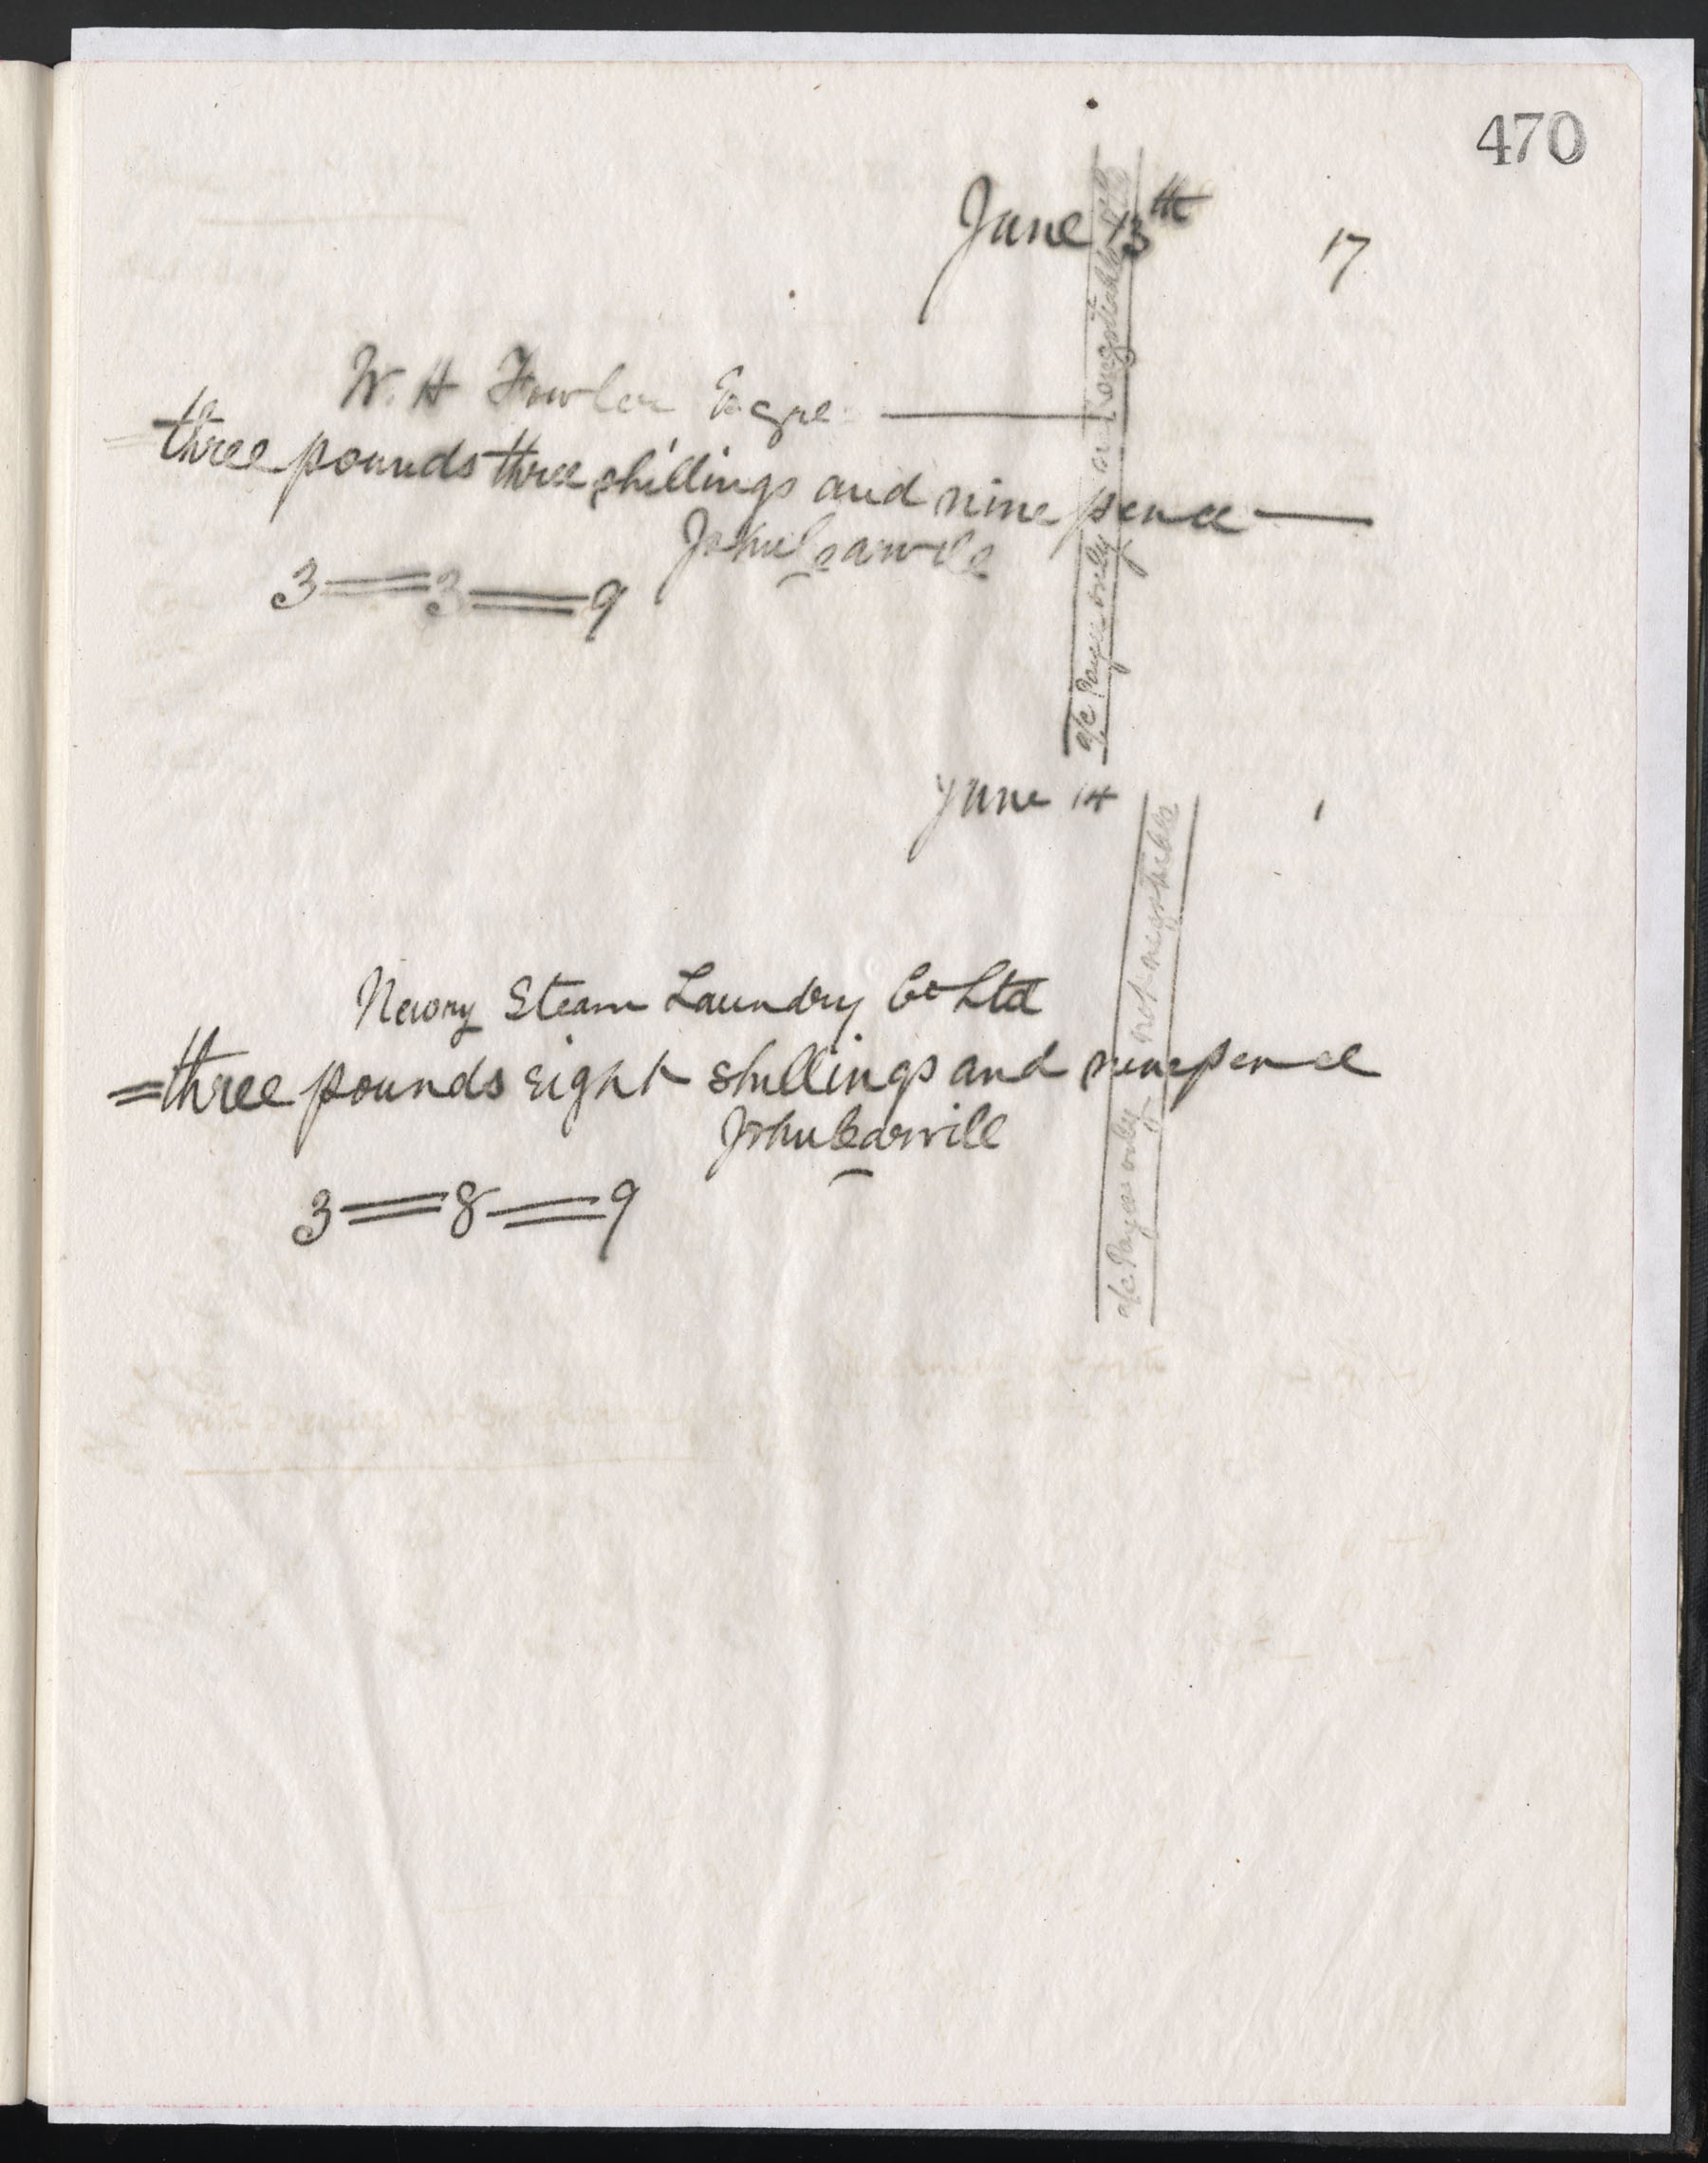 470
June 13th 17
W. H Fowler Esqre
three pounds three shillings and nine pence
John Carvill
3 = 3 = 9
a/c Payee only
June 14
Newry Steam Laundry Co Ltd
= three pounds eight shillings and ninepence
John Carvill
3 = 8 = 9
a/c Payee only not negotiable